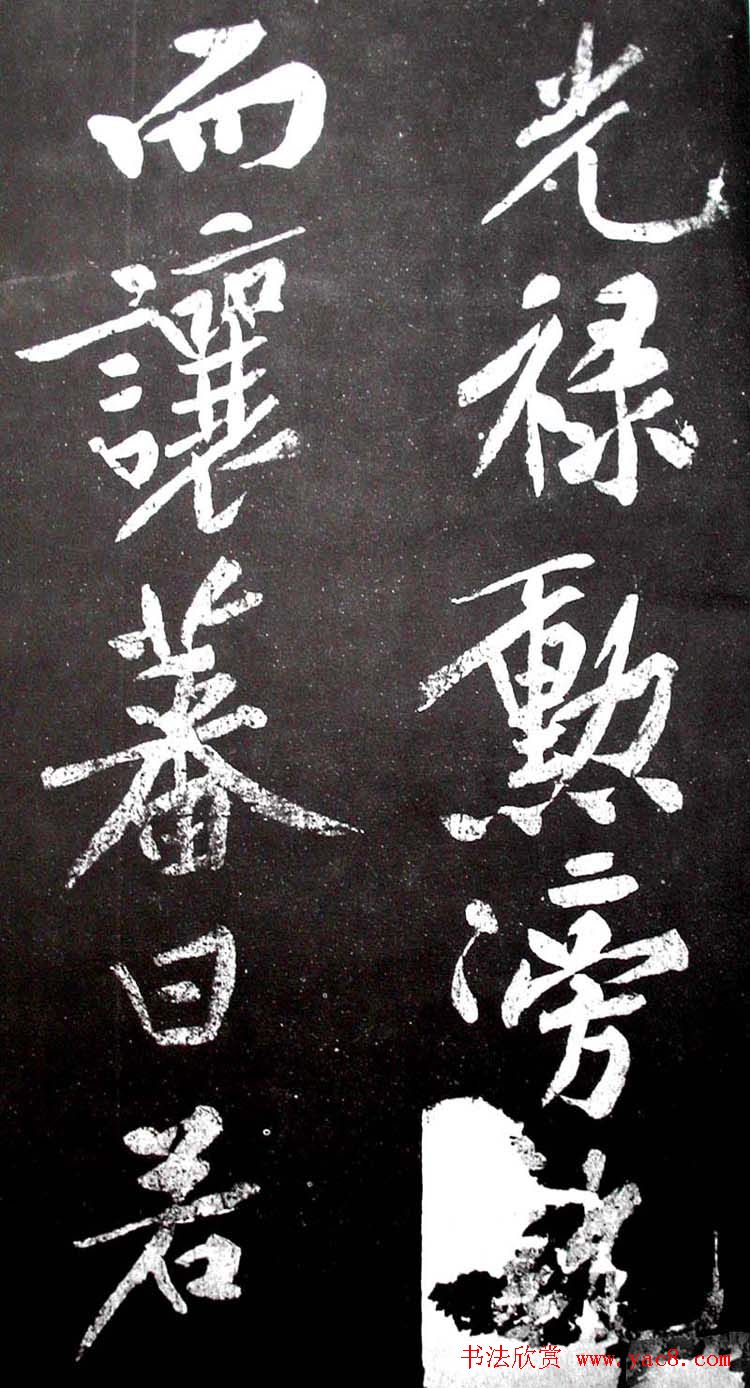 光禄勲滂
而讓蕃曰若
书法欣赏 www.yac8.com